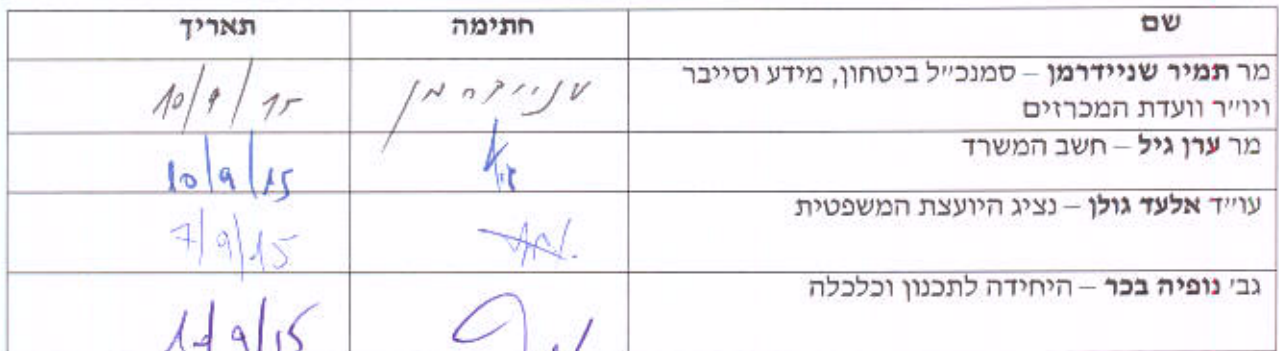 שם חתימה תאריך
מר תמיר שניידרמן – סמנכ״ל ביטחון, מידע וסייבר
ויו״ר וועדת המכרזים
שניידרמן 10/9/15
מר ערן גיל – חשב המשרד
10/9/15
עו״ד אלעד גולן – נציג היועצת המשפטית
7/9/15
גבי נופיה בכר – היחידה לתכנון וכלכלה